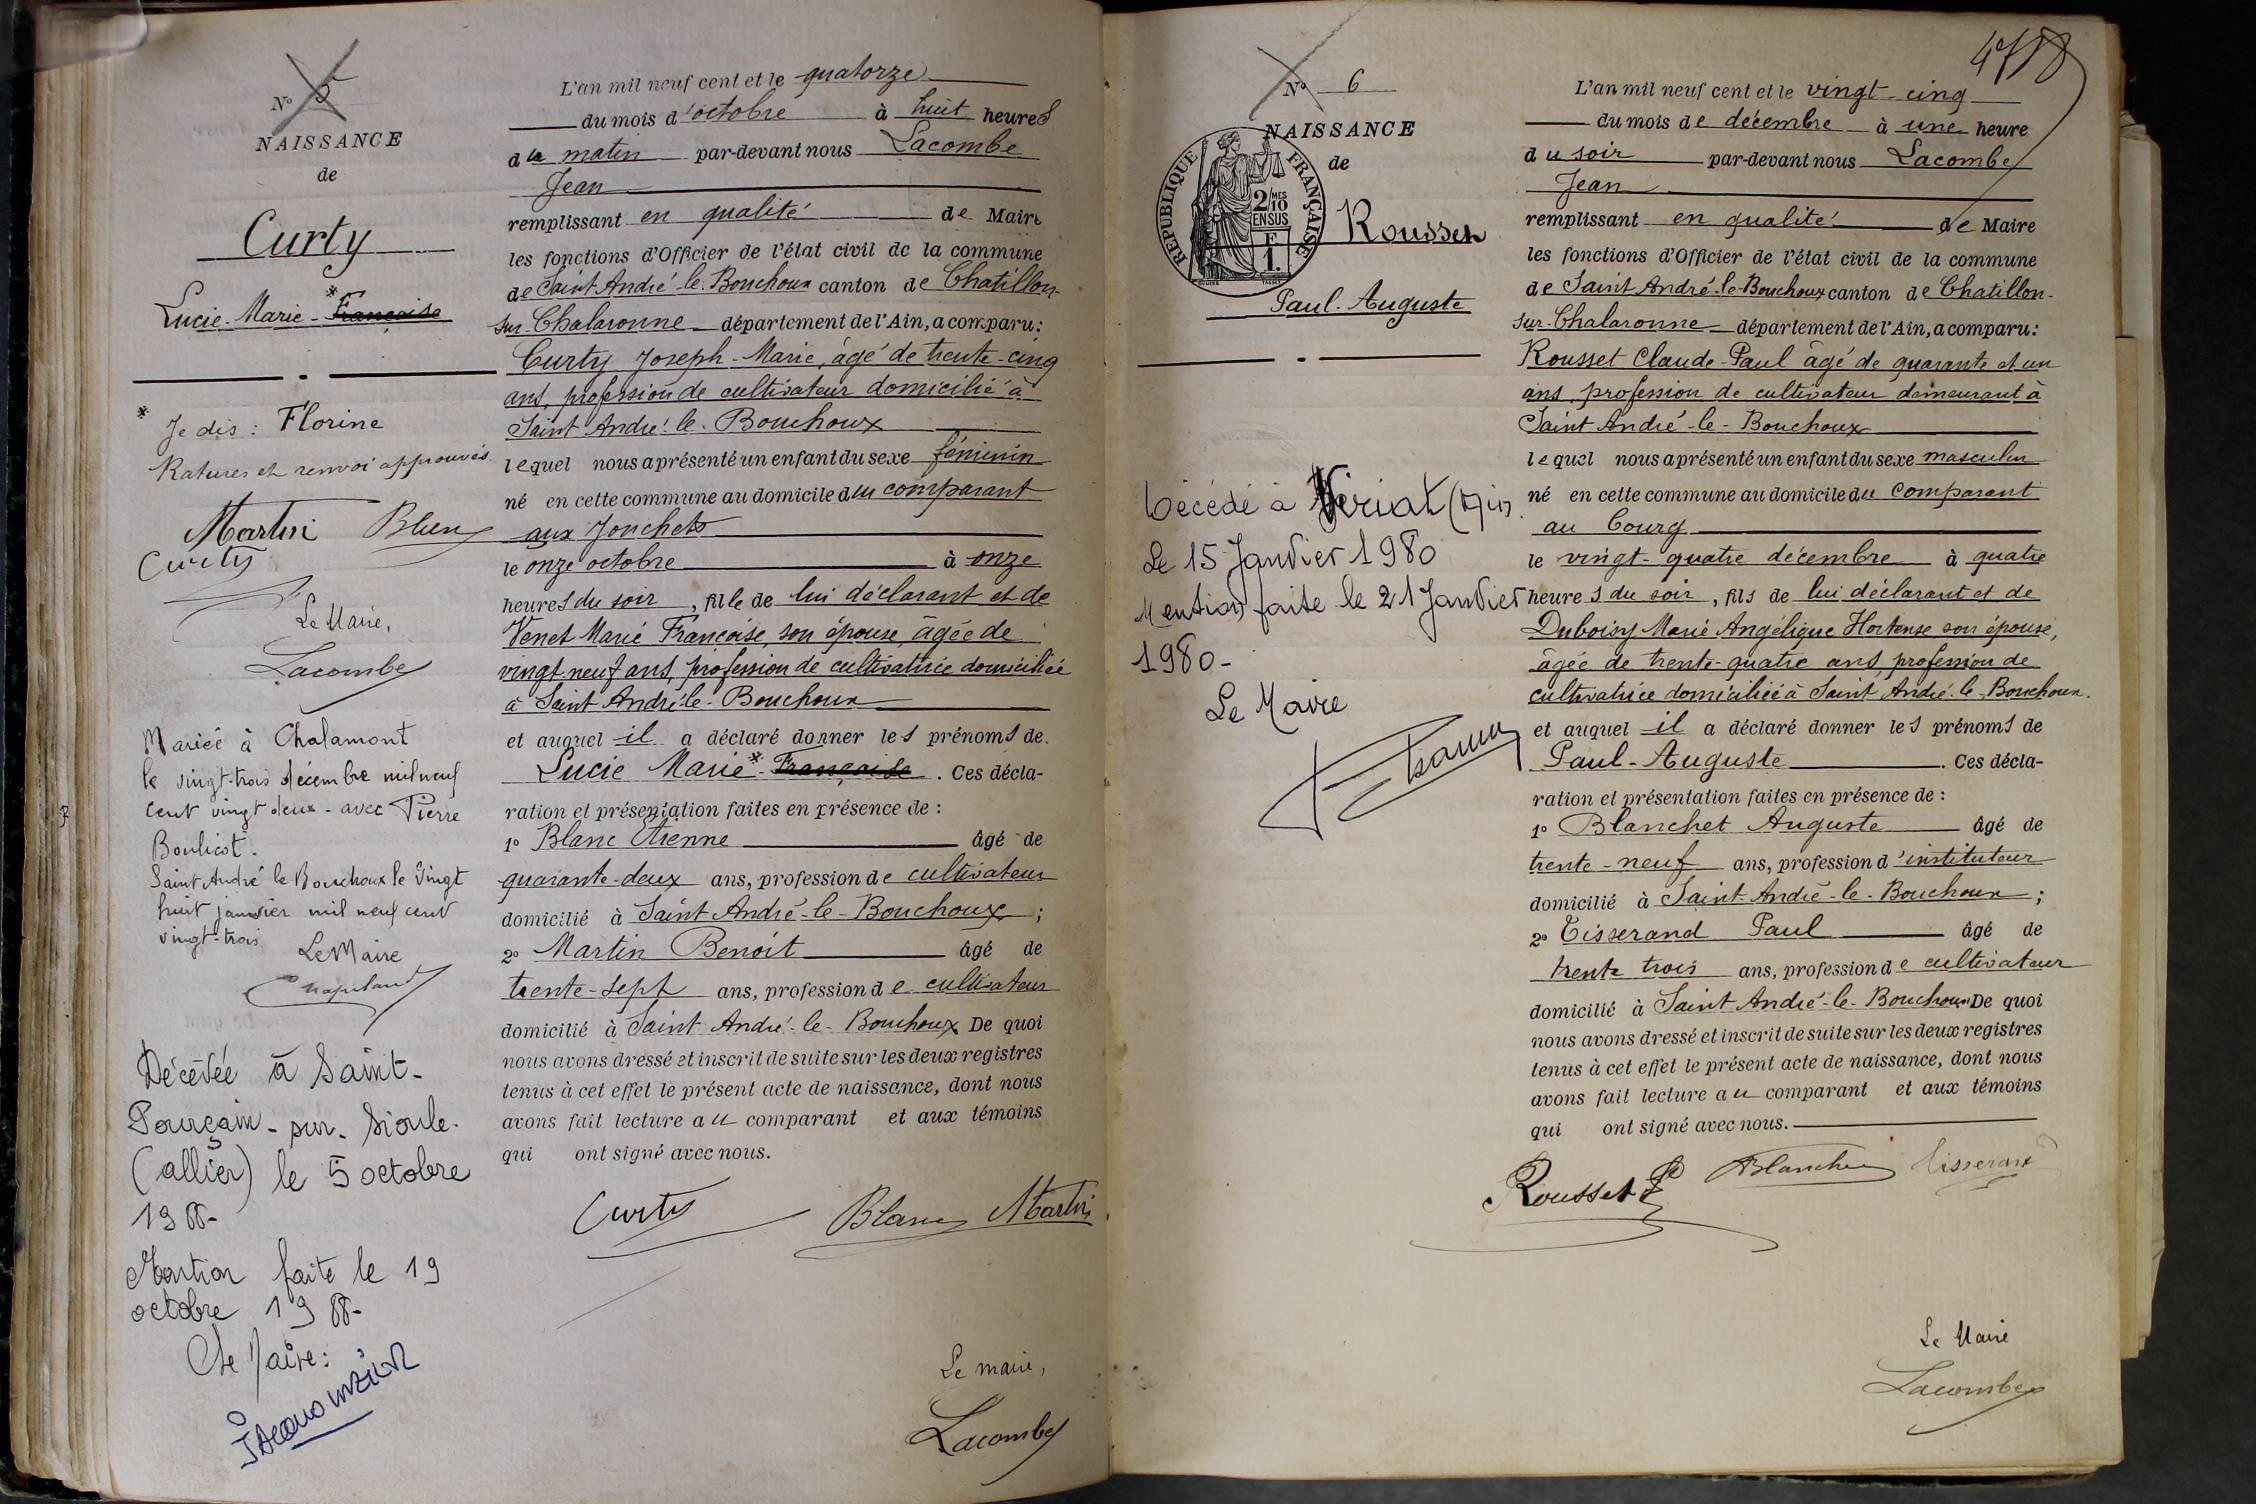 N° 5
NAISSANCE
de
Curty
Lucie-Marie-* Françoise
* Je dis : Florine
Ratures et renvoi approuvés
Martin Blanc
Curty
Le Maire,
Lacombe
Mariée à Chalamont
le vingt-trois décembre mil neuf
cent vingt deux - avec Pierre
Boulicot.
Saint André le Bouchoux le vingt
huit janvier mil neuf cent
vingt-trois
Le Maire
Décédée à Saint-
Pourçain-sur-Sioule-
(allier) le 5 octobre
1988-
Mention faite le 19
octobre 1988-
Le Maire :
L'an mil neuf cent et le quatorze
du mois d'octobre à huit heures
du matin par-devant nous Lacombe
Jean
remplissant en qualité de Maire
les fonctions d'Officier de l'état civil de la commune
de Saint André-le-Bouchoux canton de Chatillon-
sur-Chalaronne département de l'Ain, a comparu :
Curty Joseph-Marie, âgé de trente-cinq
ans, profession de cultivateur domicilié à
Saint André-le-Bouchoux
lequel nous a présenté un enfant du sexe féminin
né en cette commune au domicile du comparant
aux Jonchets
le onze octobre à onze
heures du soir, fille de lui déclarant et de
Venet Marie Françoise, son épouse, âgée de
vingt-neuf ans, profession de cultivatrice domiciliée
à Saint André-le-Bouchoux
et auquel il a déclaré donner les prénoms de
Lucie Marie* - Françoise. Ces décla-
ration et présentation faites en présence de :
1° Blanc Etienne âgé de
quarante-deux ans, profession de cultivateur
domicilié à Saint André-le-Bouchoux ;
2° Martin Benoit âgé de
trente-sept ans, profession de cultivateur
domicilié à Saint André-le-Bouchoux De quoi
nous avons dressé et inscrit de suite sur les deux registres
tenus à cet effet le présent acte de naissance, dont nous
avons fait lecture au comparant et aux témoins
qui ont signé avec nous.
Curty Blanc Martin
Le maire,
Lacombe
N° 6
NAISSANCE
de
RÉPUBLIQUE FRANÇAISE
2/10 MES
EN SUS
F
1.
Rousset
Paul-Auguste
Décédé à Viriat (Ain)
Le 15 Janvier 1980
Mention faite le 21 Janvier
1980-
Le Maire
L'an mil neuf cent et le vingt-cinq
du mois de décembre à une heure
du soir par-devant nous Lacombe
Jean
remplissant en qualité de Maire
les fonctions d'Officier de l'état civil de la commune
de Saint André-le-Bouchoux canton de Chatillon-
sur-Chalaronne département de l'Ain, a comparu :
Rousset Claude-Paul âgé de quarante et un
ans, profession de cultivateur demeurant à
Saint André-le-Bouchoux
lequel nous a présenté un enfant du sexe masculin
né en cette commune au domicile du comparant
au bourg
le vingt-quatre décembre à quatre
heures du soir, fils de lui déclarant et de
Duboisy Marie Angélique Hortense son épouse,
âgée de trente-quatre ans profession de
cultivatrice domiciliée à Saint André-le-Bouchoux.
et auquel il a déclaré donner les prénoms de
Paul-Auguste. Ces décla-
ration et présentation faites en présence de :
1° Blanchet Auguste âgé de
trente-neuf ans, profession d'instituteur
domicilié à Saint André-le-Bouchoux ;
2° Tisserand Paul âgé de
trente trois ans, profession de cultivateur
domicilié à Saint-André-le-Bouchoux De quoi
nous avons dressé et inscrit de suite sur les deux registres
tenus à cet effet le présent acte de naissance, dont nous
avons fait lecture au comparant et aux témoins
qui ont signé avec nous.
Rousset P Blanchet Tisserand
Le Maire
Lacombe